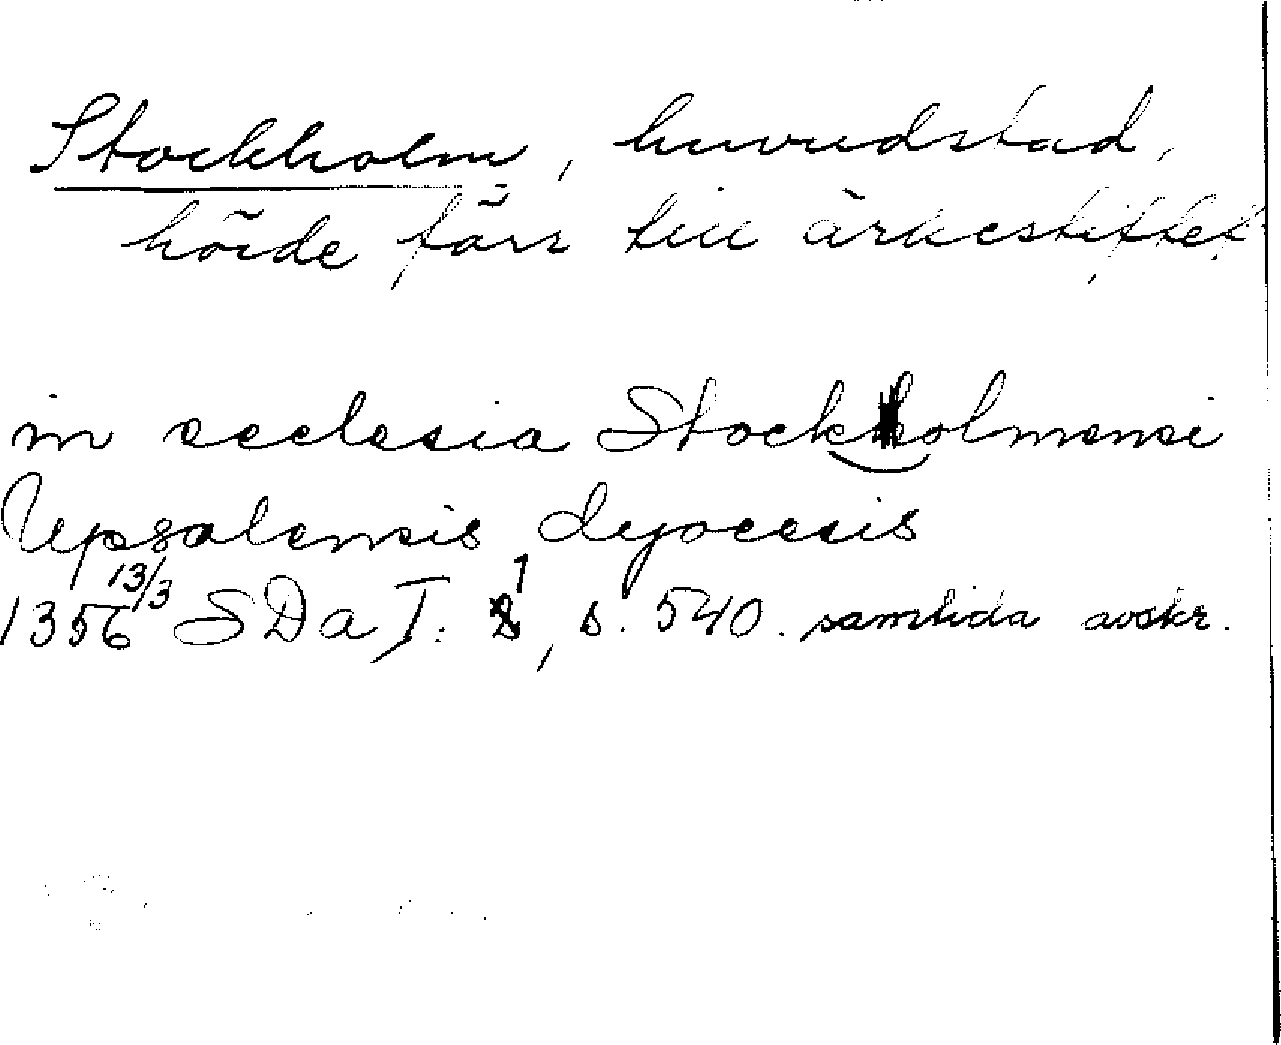 Stockholm, huvudstad,
hörde förr till ärkestiftet
in ecclesia Stockholmensi
Upsalensis dyocesis
1356 13/3 SDa I: 1, s. 540. samtida avskr.